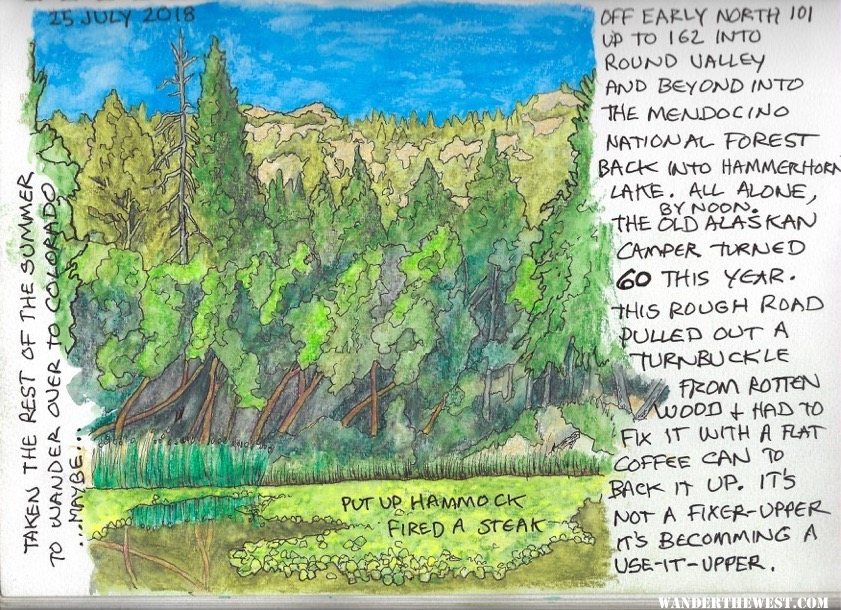 25 JULY 2018
OFF EARLY NORTH 101
UP TO 162 INTO
ROUND VALLEY
AND BEYOND INTO
THE MENDOCINO
NATIONAL FOREST
BACK INTO HAMMERHORN
LAKE. ALL ALONE,
BY NOON.
THE OLD ALASKAN
CAMPER TURNED
60 THIS YEAR.
THIS ROUGH ROAD
PULLED OUT A
TURNBUCKLE
FROM ROTTEN
WOOD + HAD TO
FIX IT WITH A FLAT
COFFEE CAN TO
BACK IT UP. IT'S
NOT A FIXER-UPPER
IT'S BECOMMING A
USE-IT-UPPER.
TAKEN THE REST OF THE SUMMER
TO WANDER OVER TO COLORADO
...MAYBE...
PUT UP HAMMOCK
FIRED A STEAK
WANDERTHEWEST.COM